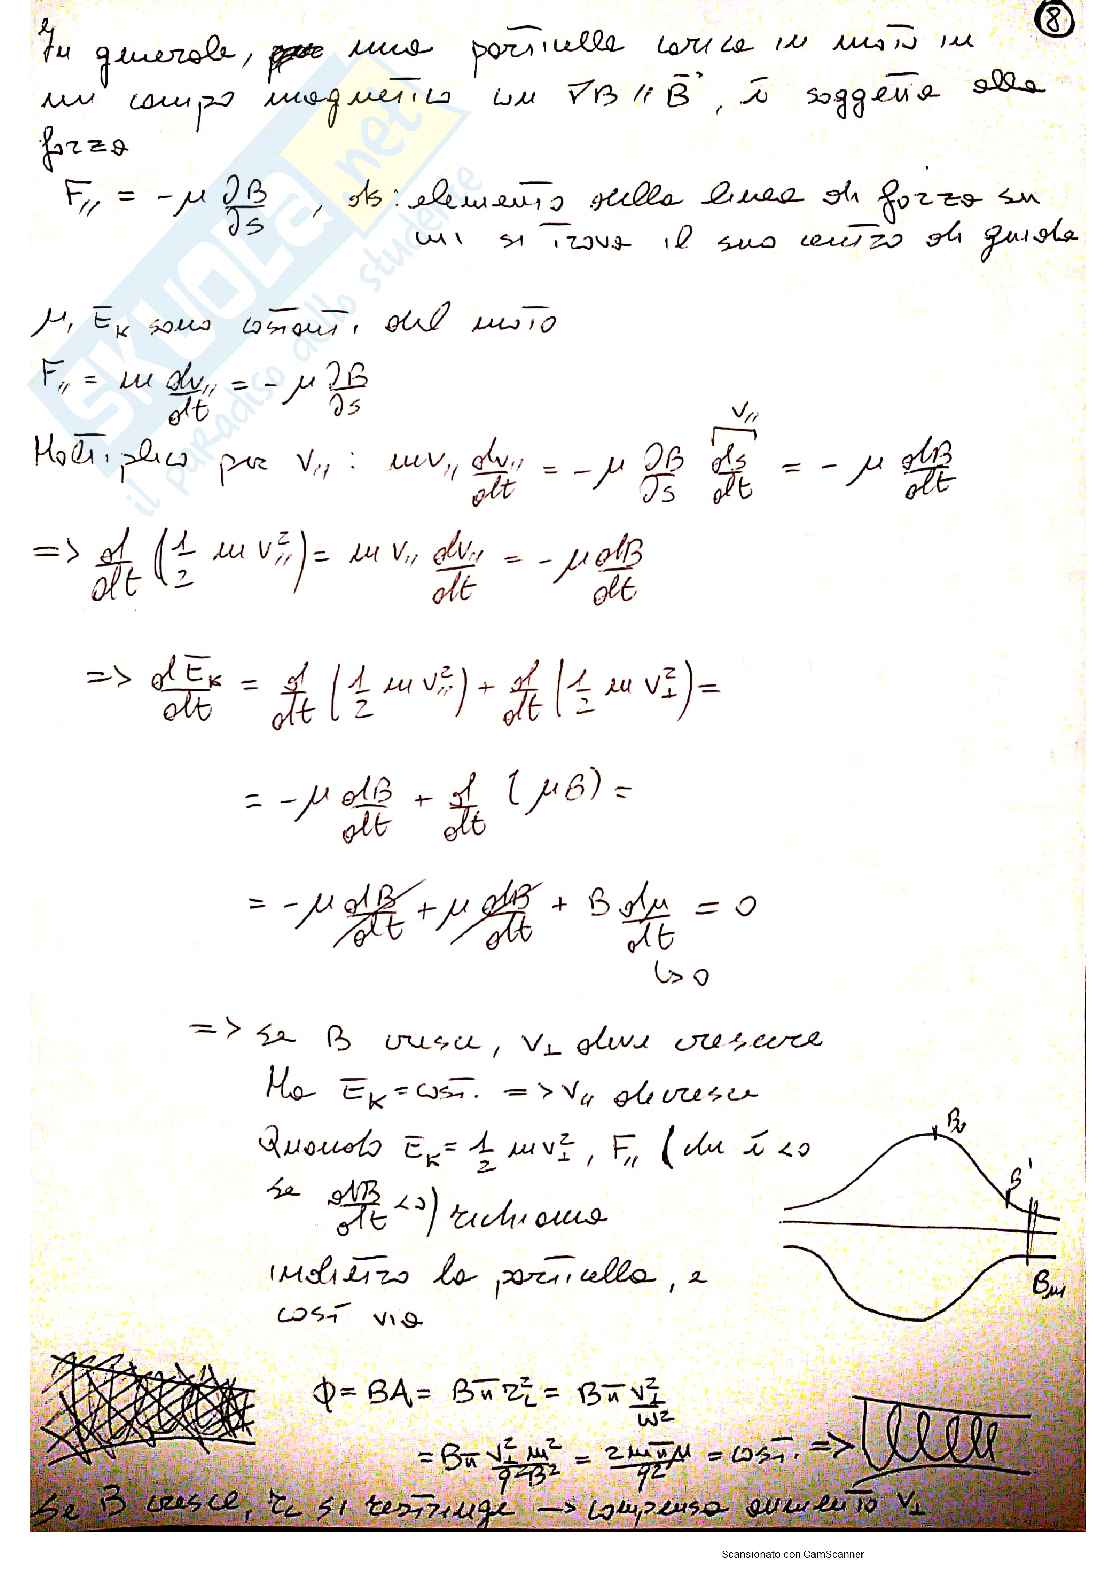 8
In generale, una particella carica in moto in
un campo magnetico con ∇B // B⃗, è soggetta alla
forza
F// = -μ ∂B/∂s , ds: elemento della linea di forza su
cui si trova il suo centro di guida
μ, E_K sono costanti del moto
F// = m dv///dt = -μ ∂B/∂s
Moltiplico per v// : mv// dv///dt = -μ ∂B/∂s ds/dt = -μ dB/dt
v//
=> d/dt (1/2 m v//²) = m v// dv///dt = -μ dB/dt
=> dE_K/dt = d/dt (1/2 m v//²) + d/dt (1/2 m v⊥²) =
= -μ dB/dt + d/dt (μB) =
= -μ dB/dt + μ dB/dt + B dμ/dt = 0
↳ 0
=> se B cresce, v⊥ deve crescere
Ma E_K = cost. => v// decresce
Quando E_K = 1/2 mv⊥², F// (che è <0
se dB/dt <0) richiama
indietro la particella, e
così via
B₀
B'
B_M
Φ = BA = Bπ r_L² = Bπ v⊥²/ω²
= Bπ v⊥² m²/q²B² = 2mπμ/q² = cost. =>
Se B cresce, r_L si restringe -> compensa aumento v⊥
SKUOLA.net
il paradiso dello studente
Scansionato con CamScanner